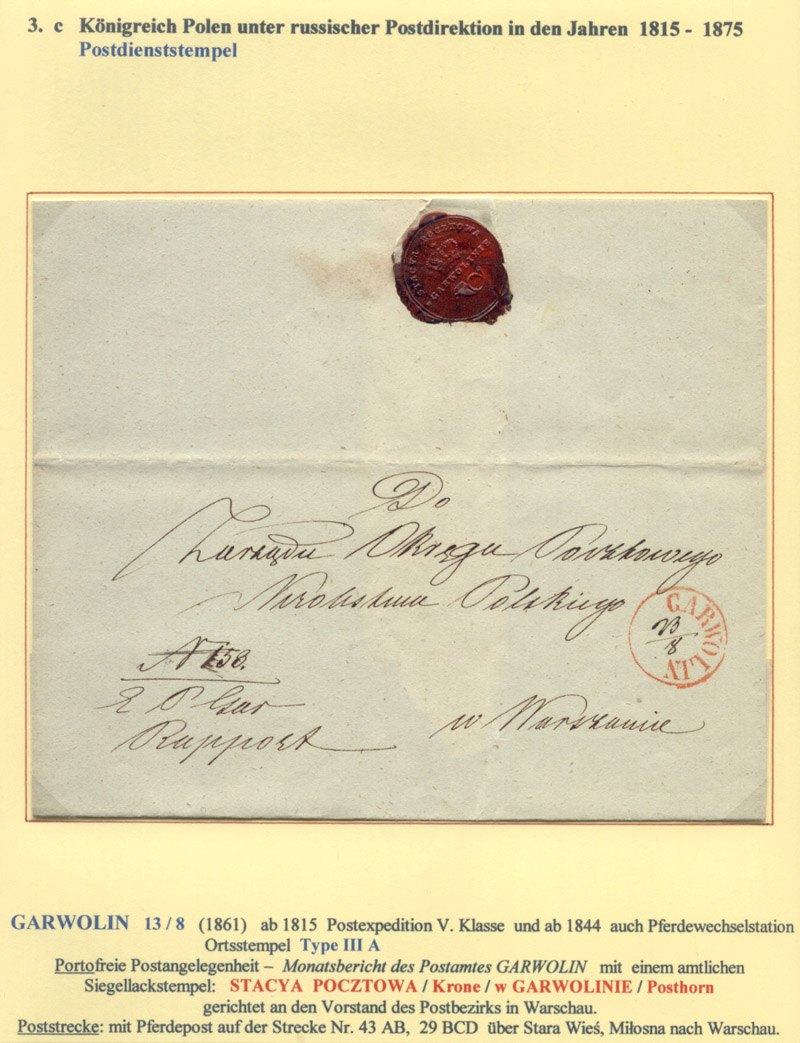 3. c Königreich Polen unter russischer Postdirektion in den Jahren 1815 - 1875
Postdienststempel
STACYA POCZTOWA
w GARWOLINIE
Do
Zarządu Okręgu Pocztowego
Królestwa Polskiego
GARWOLIN
13/8
N 158.
Z P Gar
Rapport
w Warszawie
GARWOLIN 13 / 8 (1861) ab 1815 Postexpedition V. Klasse und ab 1844 auch Pferdewechselstation
Ortsstempel Type III A
Portofreie Postangelegenheit – Monatsbericht des Postamtes GARWOLIN mit einem amtlichen
Siegellackstempel: STACYA POCZTOWA / Krone / w GARWOLINIE / Posthorn
gerichtet an den Vorstand des Postbezirks in Warschau.
Poststrecke: mit Pferdepost auf der Strecke Nr. 43 AB, 29 BCD über Stara Wieś, Miłosna nach Warschau.